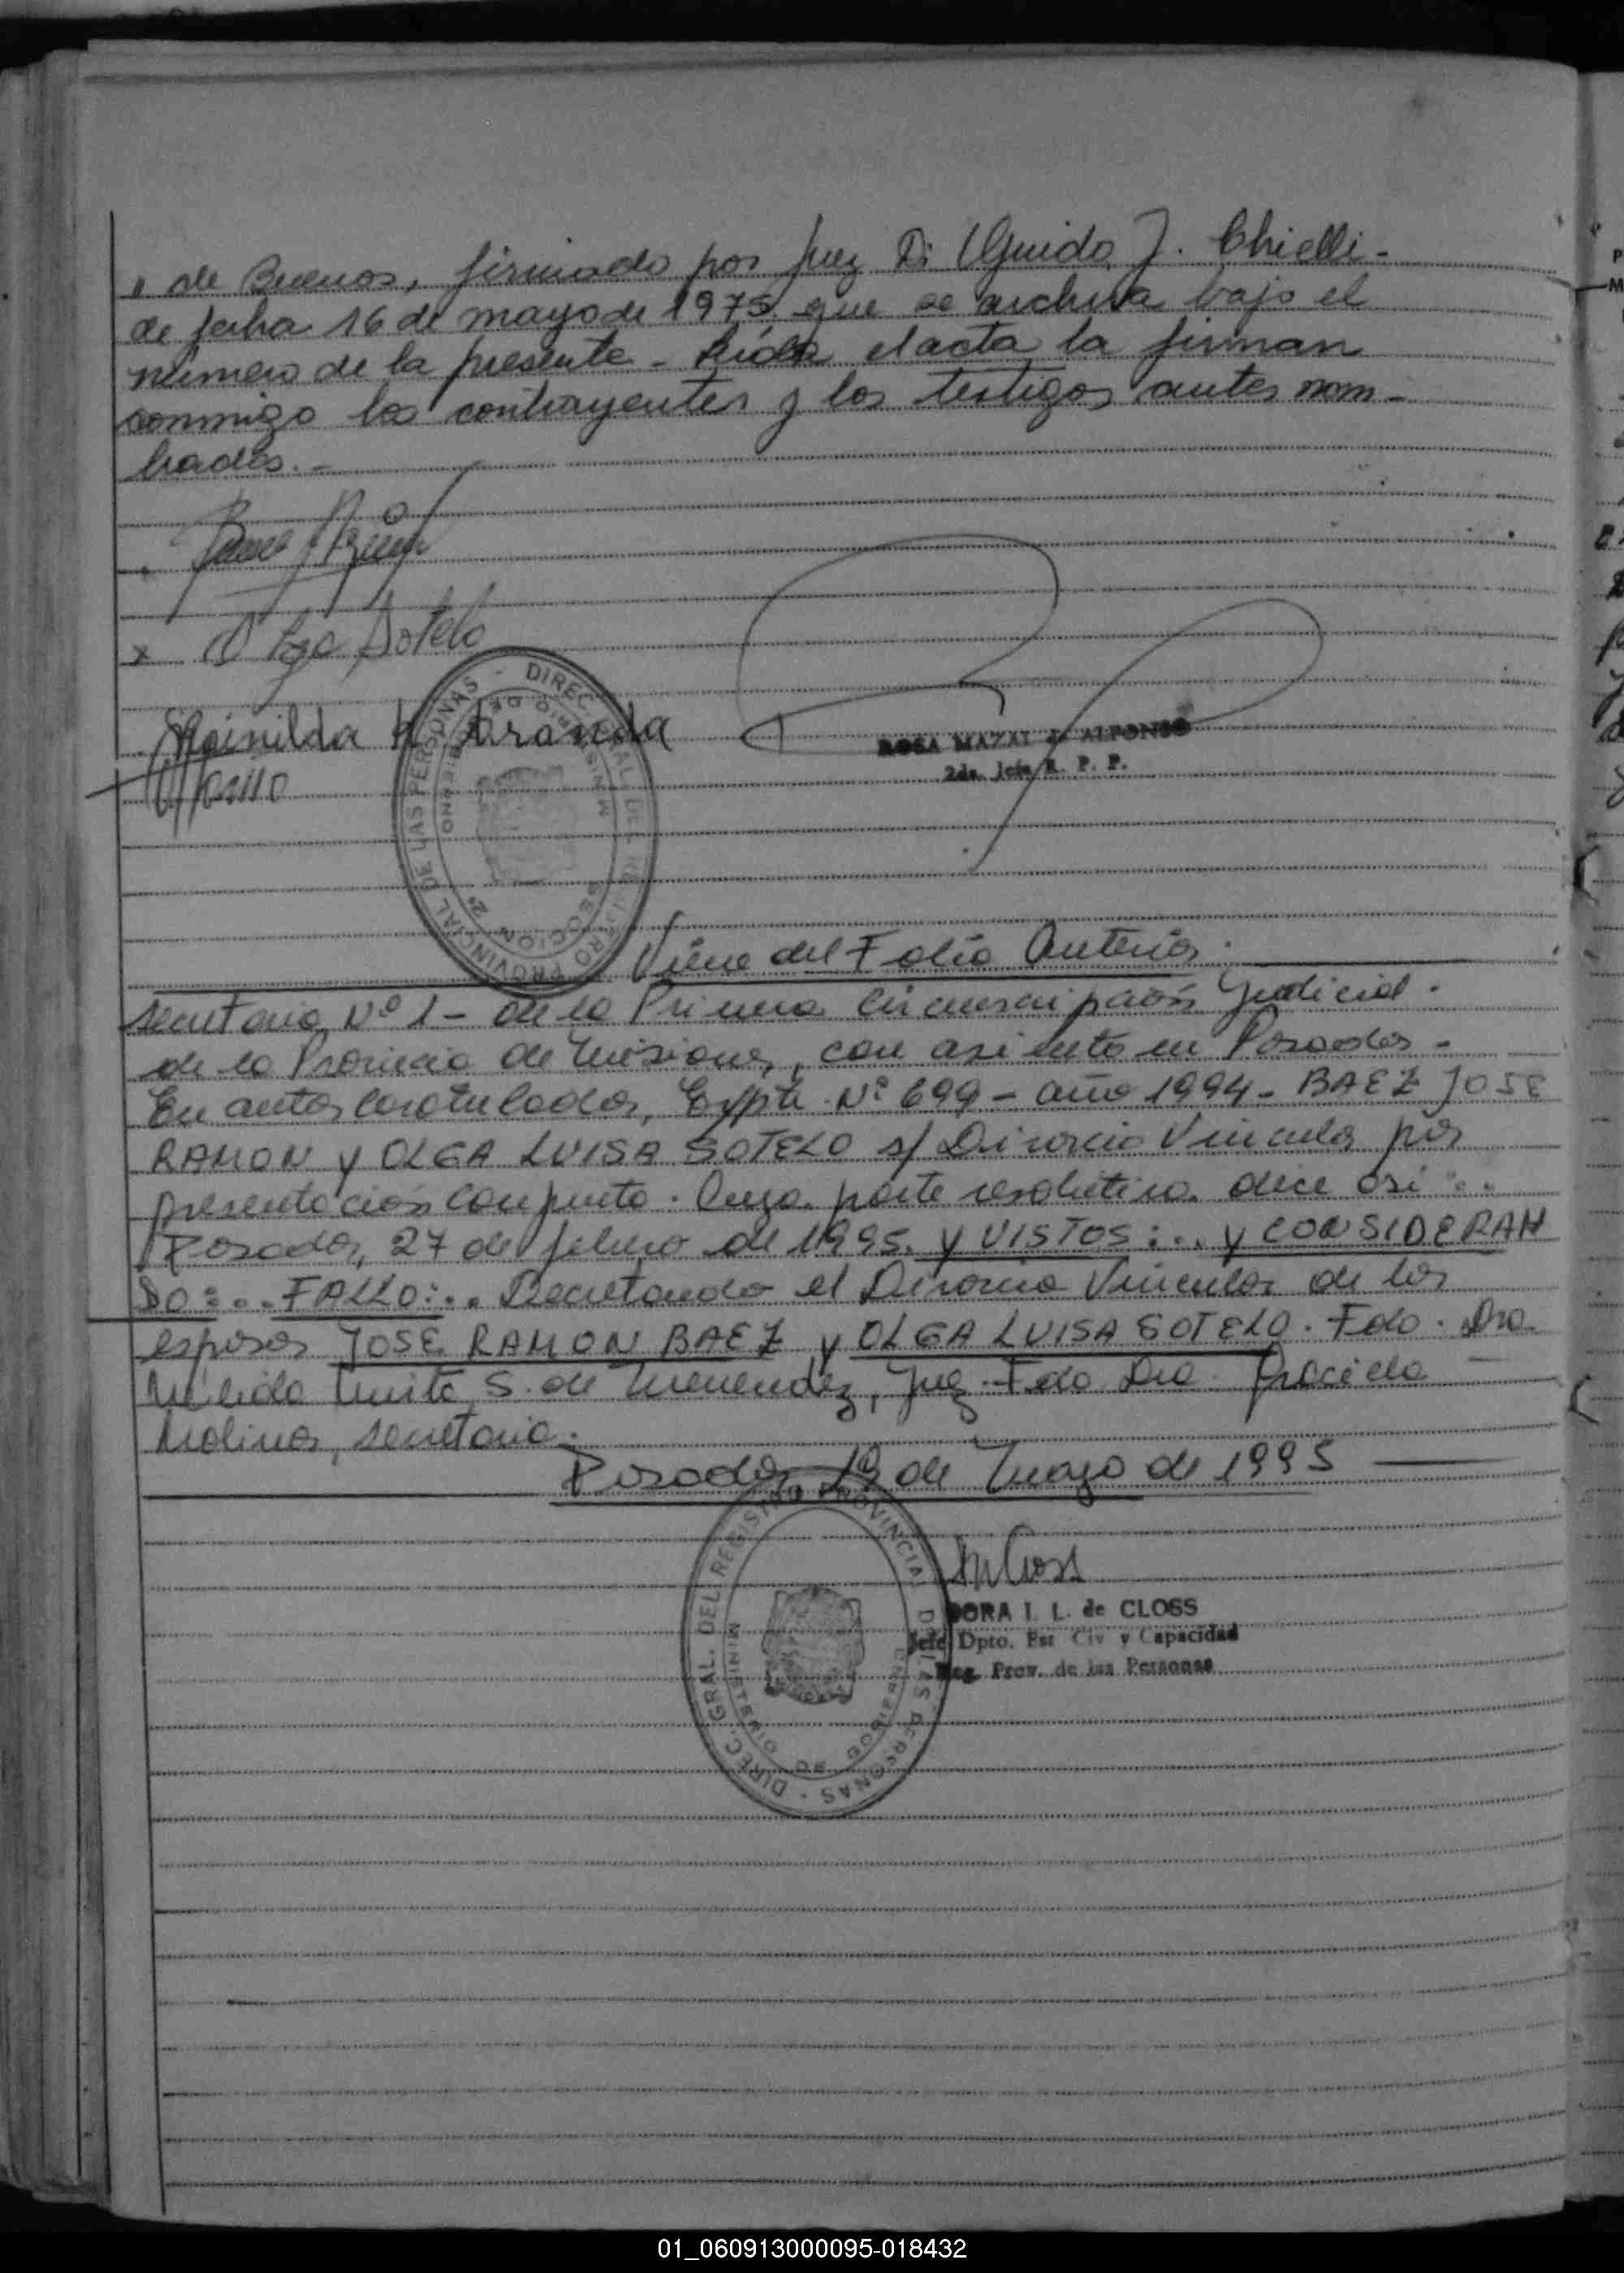 " de Buenos, firmado por Juez Dr Guido J. Chielli-
de fecha 16 de mayo de 1975 que se archiva bajo el
número de la presente - Leída el acta la firman
conmigo los contrayentes y los testigos antes nom-
brados. -
x Olga Sotelo
Aranda
ROSA MAZAL de ALFONSO
2da. Jefe R. P. P.
DIREC. GRAL. DEL REGISTRO PROVINCIAL DE LAS PERSONAS -
MINISTERIO DE GOBIERNO
2ª SECCION
Viene del Folio Anterior.
secretaria Nº 1 - de la Primera Circunscripción Judicial.
de la Provincia de Misiones, con asiento en Posadas -
En autos caratulados, Expte. Nº 699 - año 1994 - BAEZ JOSE
RAMON y OLGA LUISA SOTELO s/ Divorcio Vincular por
presentación conjunta. Cuya parte resolutiva dice así:..
Posadas, 27 de febrero de 1995. y VISTOS:... y CONSIDERAN
DO:... FALLO:.. Decretando el Divorcio Vincular de los
esposos JOSE RAMON BAEZ y OLGA LUISA SOTELO. Fdo. Dra.
S. de Menendez, Juez. Fdo Dra. Graciela
Molinas, secretaria.
Posadas, 19 de Mayo de 1995
DORA I. L. de CLOSS
Jefe Dpto. Est Civ y Capacidad
Reg. Prov. de las Personas
DIREC. GRAL. DEL REGISTRO PROVINCIAL DE LAS PERSONAS -
MINISTERIO DE GOBIERNO
01_060913000095-018432